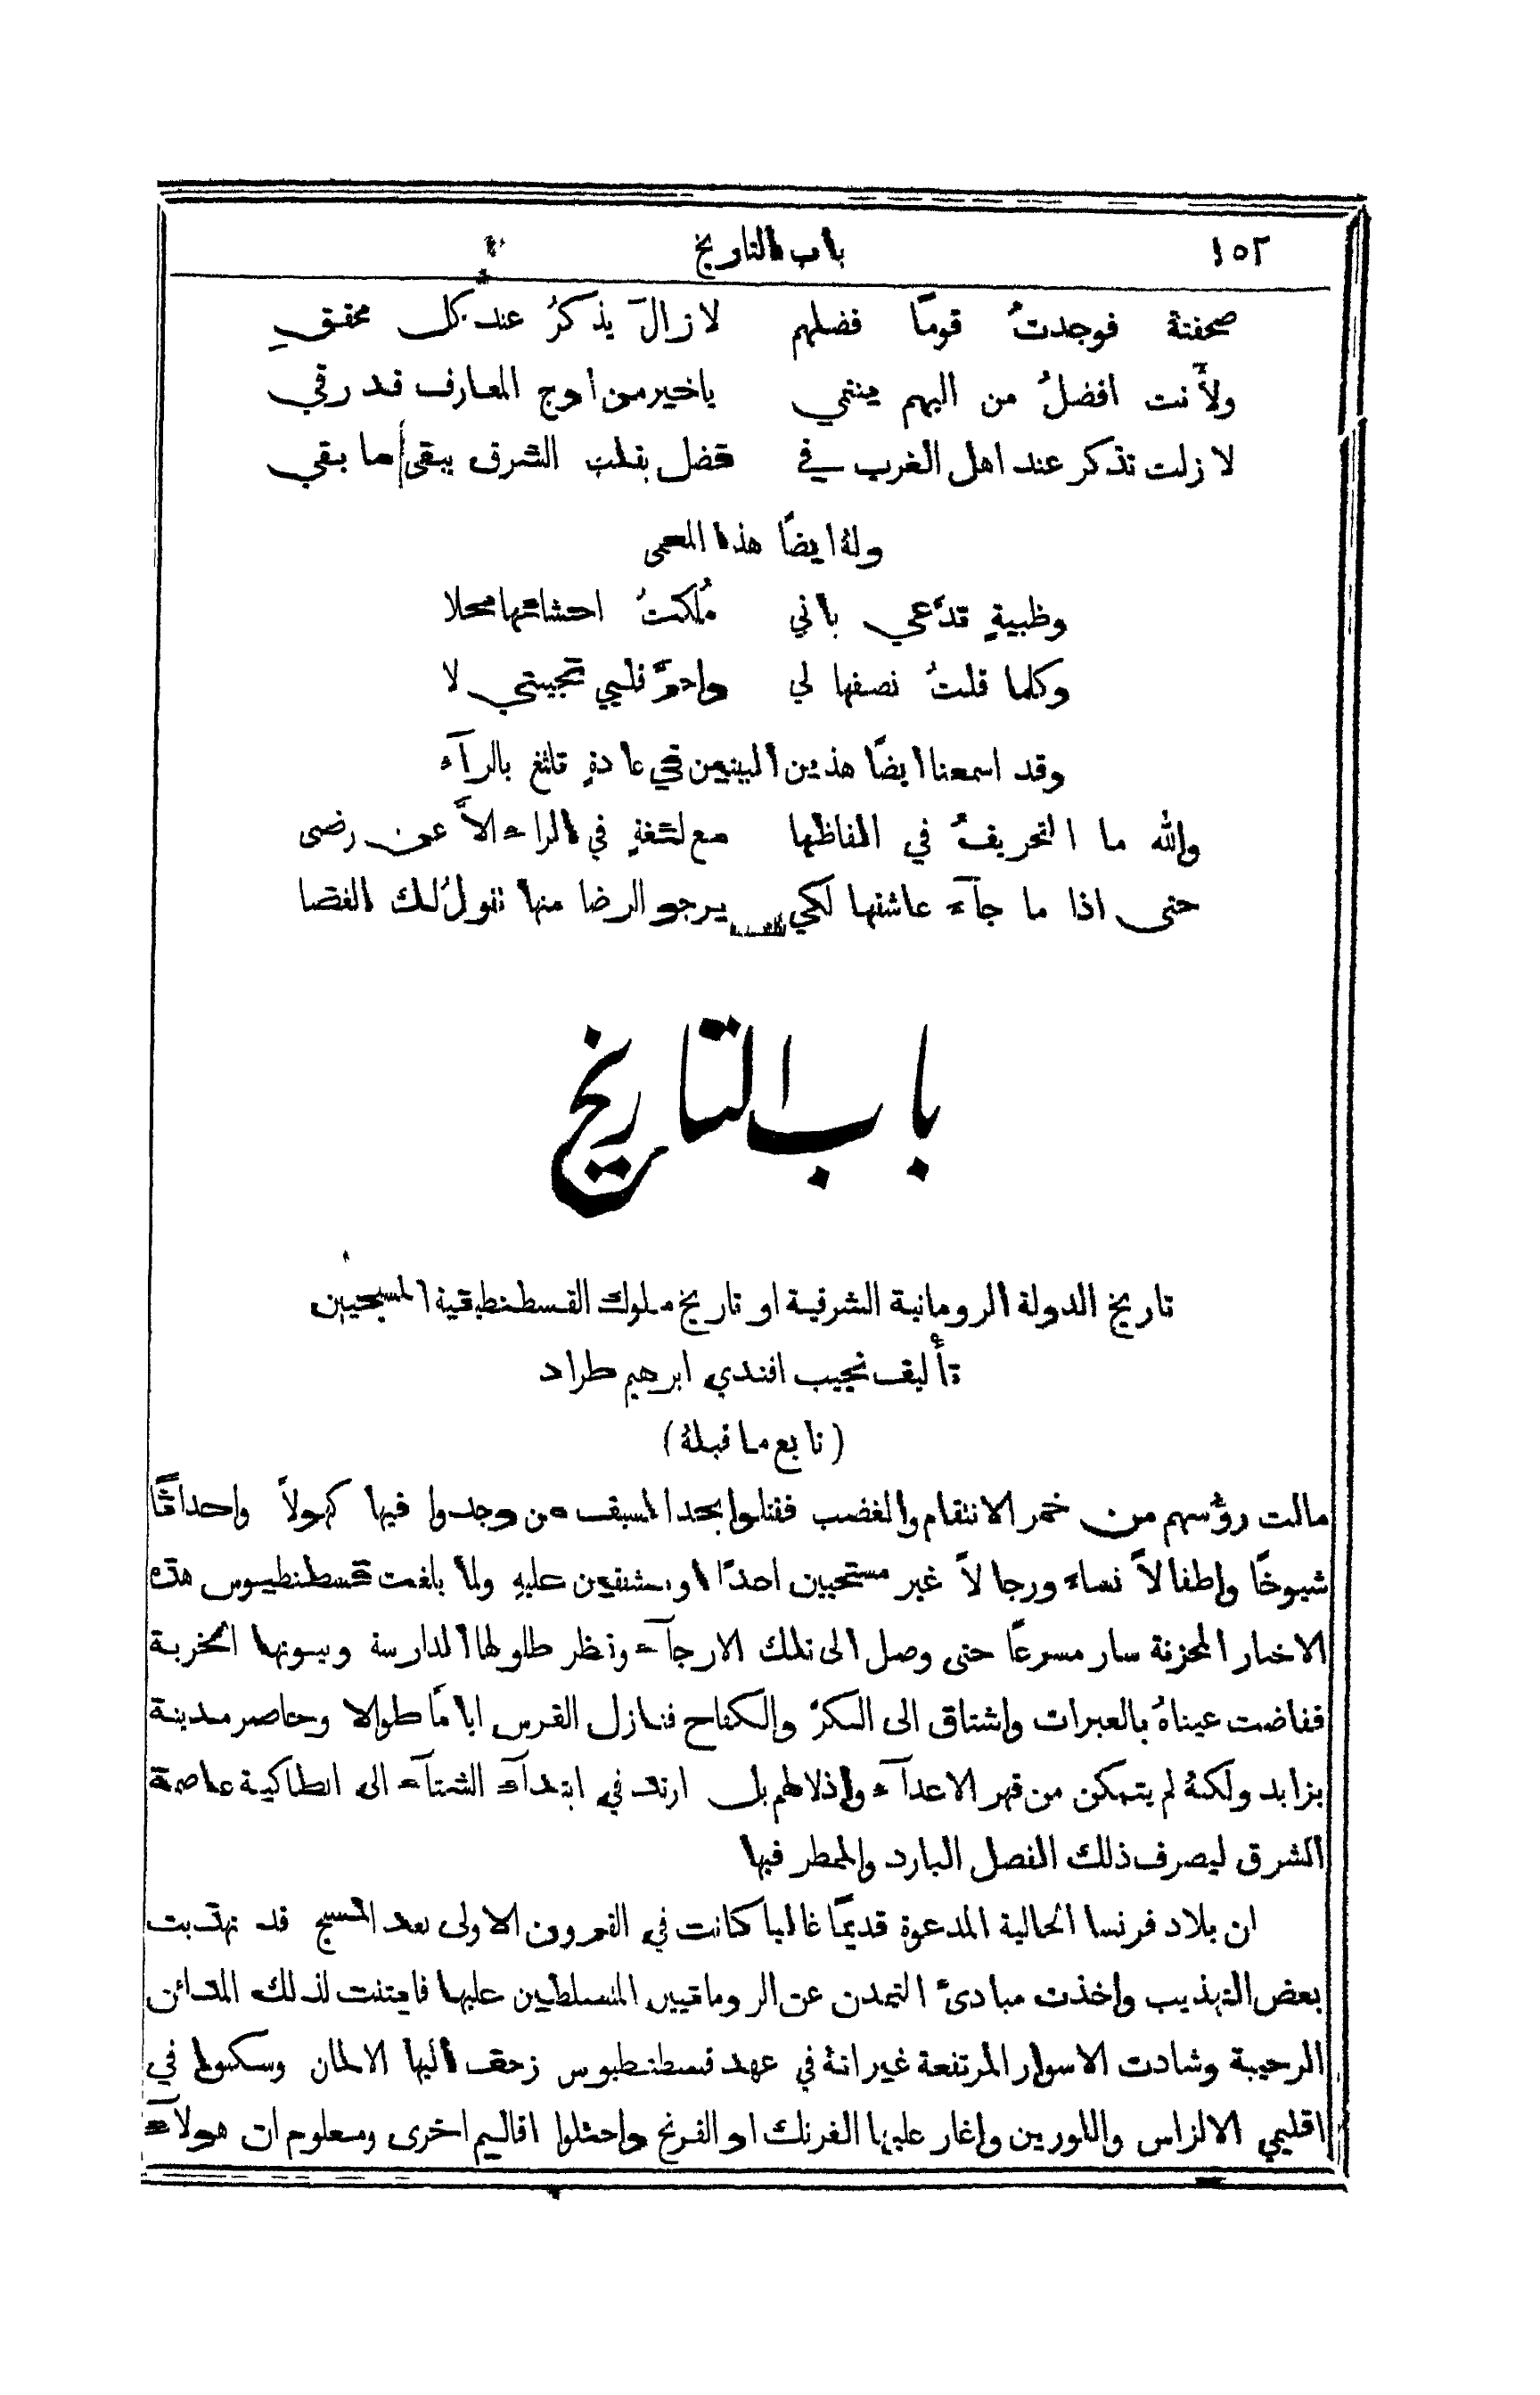 ١٥٢ باب التاريخ
صحفتهُ فوجدتُ قومًا فضلهم لا زالَ يذكرُ عند كل محققِ
ولأَنت افضلُ من اليهم ينتمي يا خير من اوج المعارف قد رقي
لا زلت تذكر عند اهل الغرب في فضل بقلب الشرق يبقى ما بقي
ولهُ ايضًا هذا المعمى
وظبيةٍ تدَّعي باني مُلكتُ احشاءَها محلا
وكلما قلتُ نصفها لي واحرَّ قلبي تجيبني لا
وقد اسمعنا ايضًا هذين البيتين في غادةٍ تلثغ بالرآء
والله ما التحريفُ في الفاظها مع لثغةٍ في الراء الاَّ عن رضى
حتى اذا ما جآء عاشقها لكي يرجو الرضا منها تقولُ لك الغضا
باب التاريخ
تاريخ الدولة الرومانية الشرقية او تاريخ ملوك القسطنطينية المسيحيين
تأليف نجيب افندي ابرهيم طراد
(تابع ما قبلهُ)
مالت رؤُسهم من خمر الانتقام والغضب فقتلوا بحد السيف من وجدوا فيها كهولاً واحداثًا
شيوخًا واطفالاً نساء ورجالاً غير مستحيين احدًا او مشفقين عليهِ ولما بلغت قسطنطيوس هذه
الاخبار المحزنة سار مسرعًا حتى وصل الى تلك الارجآء ونظر طلولها الدارسة وبيوتها الخربة
ففاضت عيناهُ بالعبرات واشتاق الى الكرّ والكفاح فنازل الفرس ايامًا طوالا وحاصر مدينة
بزابد ولكنهُ لم يتمكن من قهر الاعدآء واذلالهم بل ارتد في ابتدآء الشتآء الى انطاكية عاصمة
الشرق ليصرف ذلك الفصل البارد والممطر فيها
ان بلاد فرنسا الحالية المدعوة قديمًا غاليا كانت في القرون الاولى بعد المسيح قد تهذبت
بعض التهذيب واخذت مبادئ التمدن عن الرومانيين المتسلطين عليها فابتنت لذلك المدائن
الرحيبة وشادت الاسوار المرتفعة غير انهُ في عهد قسطنطيوس زحف اليها الالمان وسكنوا في
اقليمي الالزاس واللورين واغار عليها الفرنك او الفرنج واحتلوا اقاليم اخرى ومعلوم ان هولآء